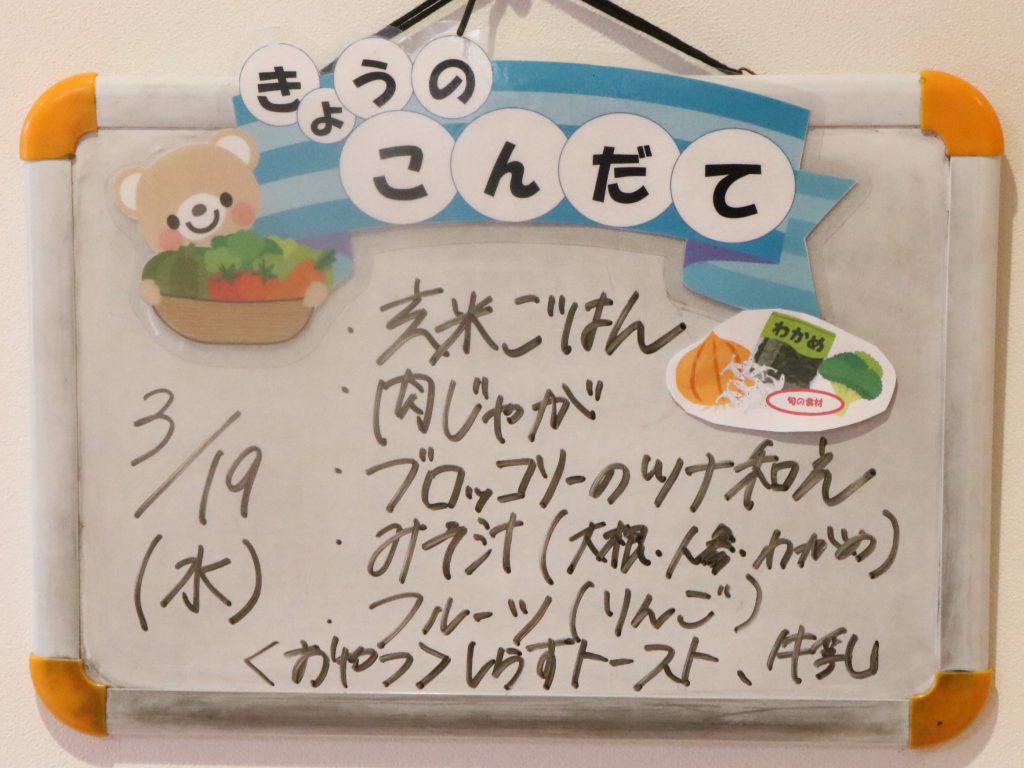 きょうの
こんだて
・玄米ごはん
わかめ
旬の食材
・肉じゃが
3/19
(水)
・ブロッコリーのツナ和え
・みそ汁(大根・人参・わかめ)
・フルーツ(りんご)
<おやつ>しらすトースト、牛乳